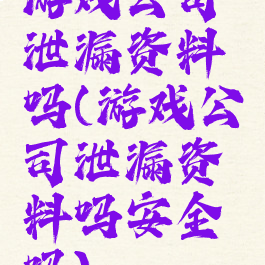 游戏公司
泄漏资料
吗(游戏公
司泄漏资
料吗安全
吗)